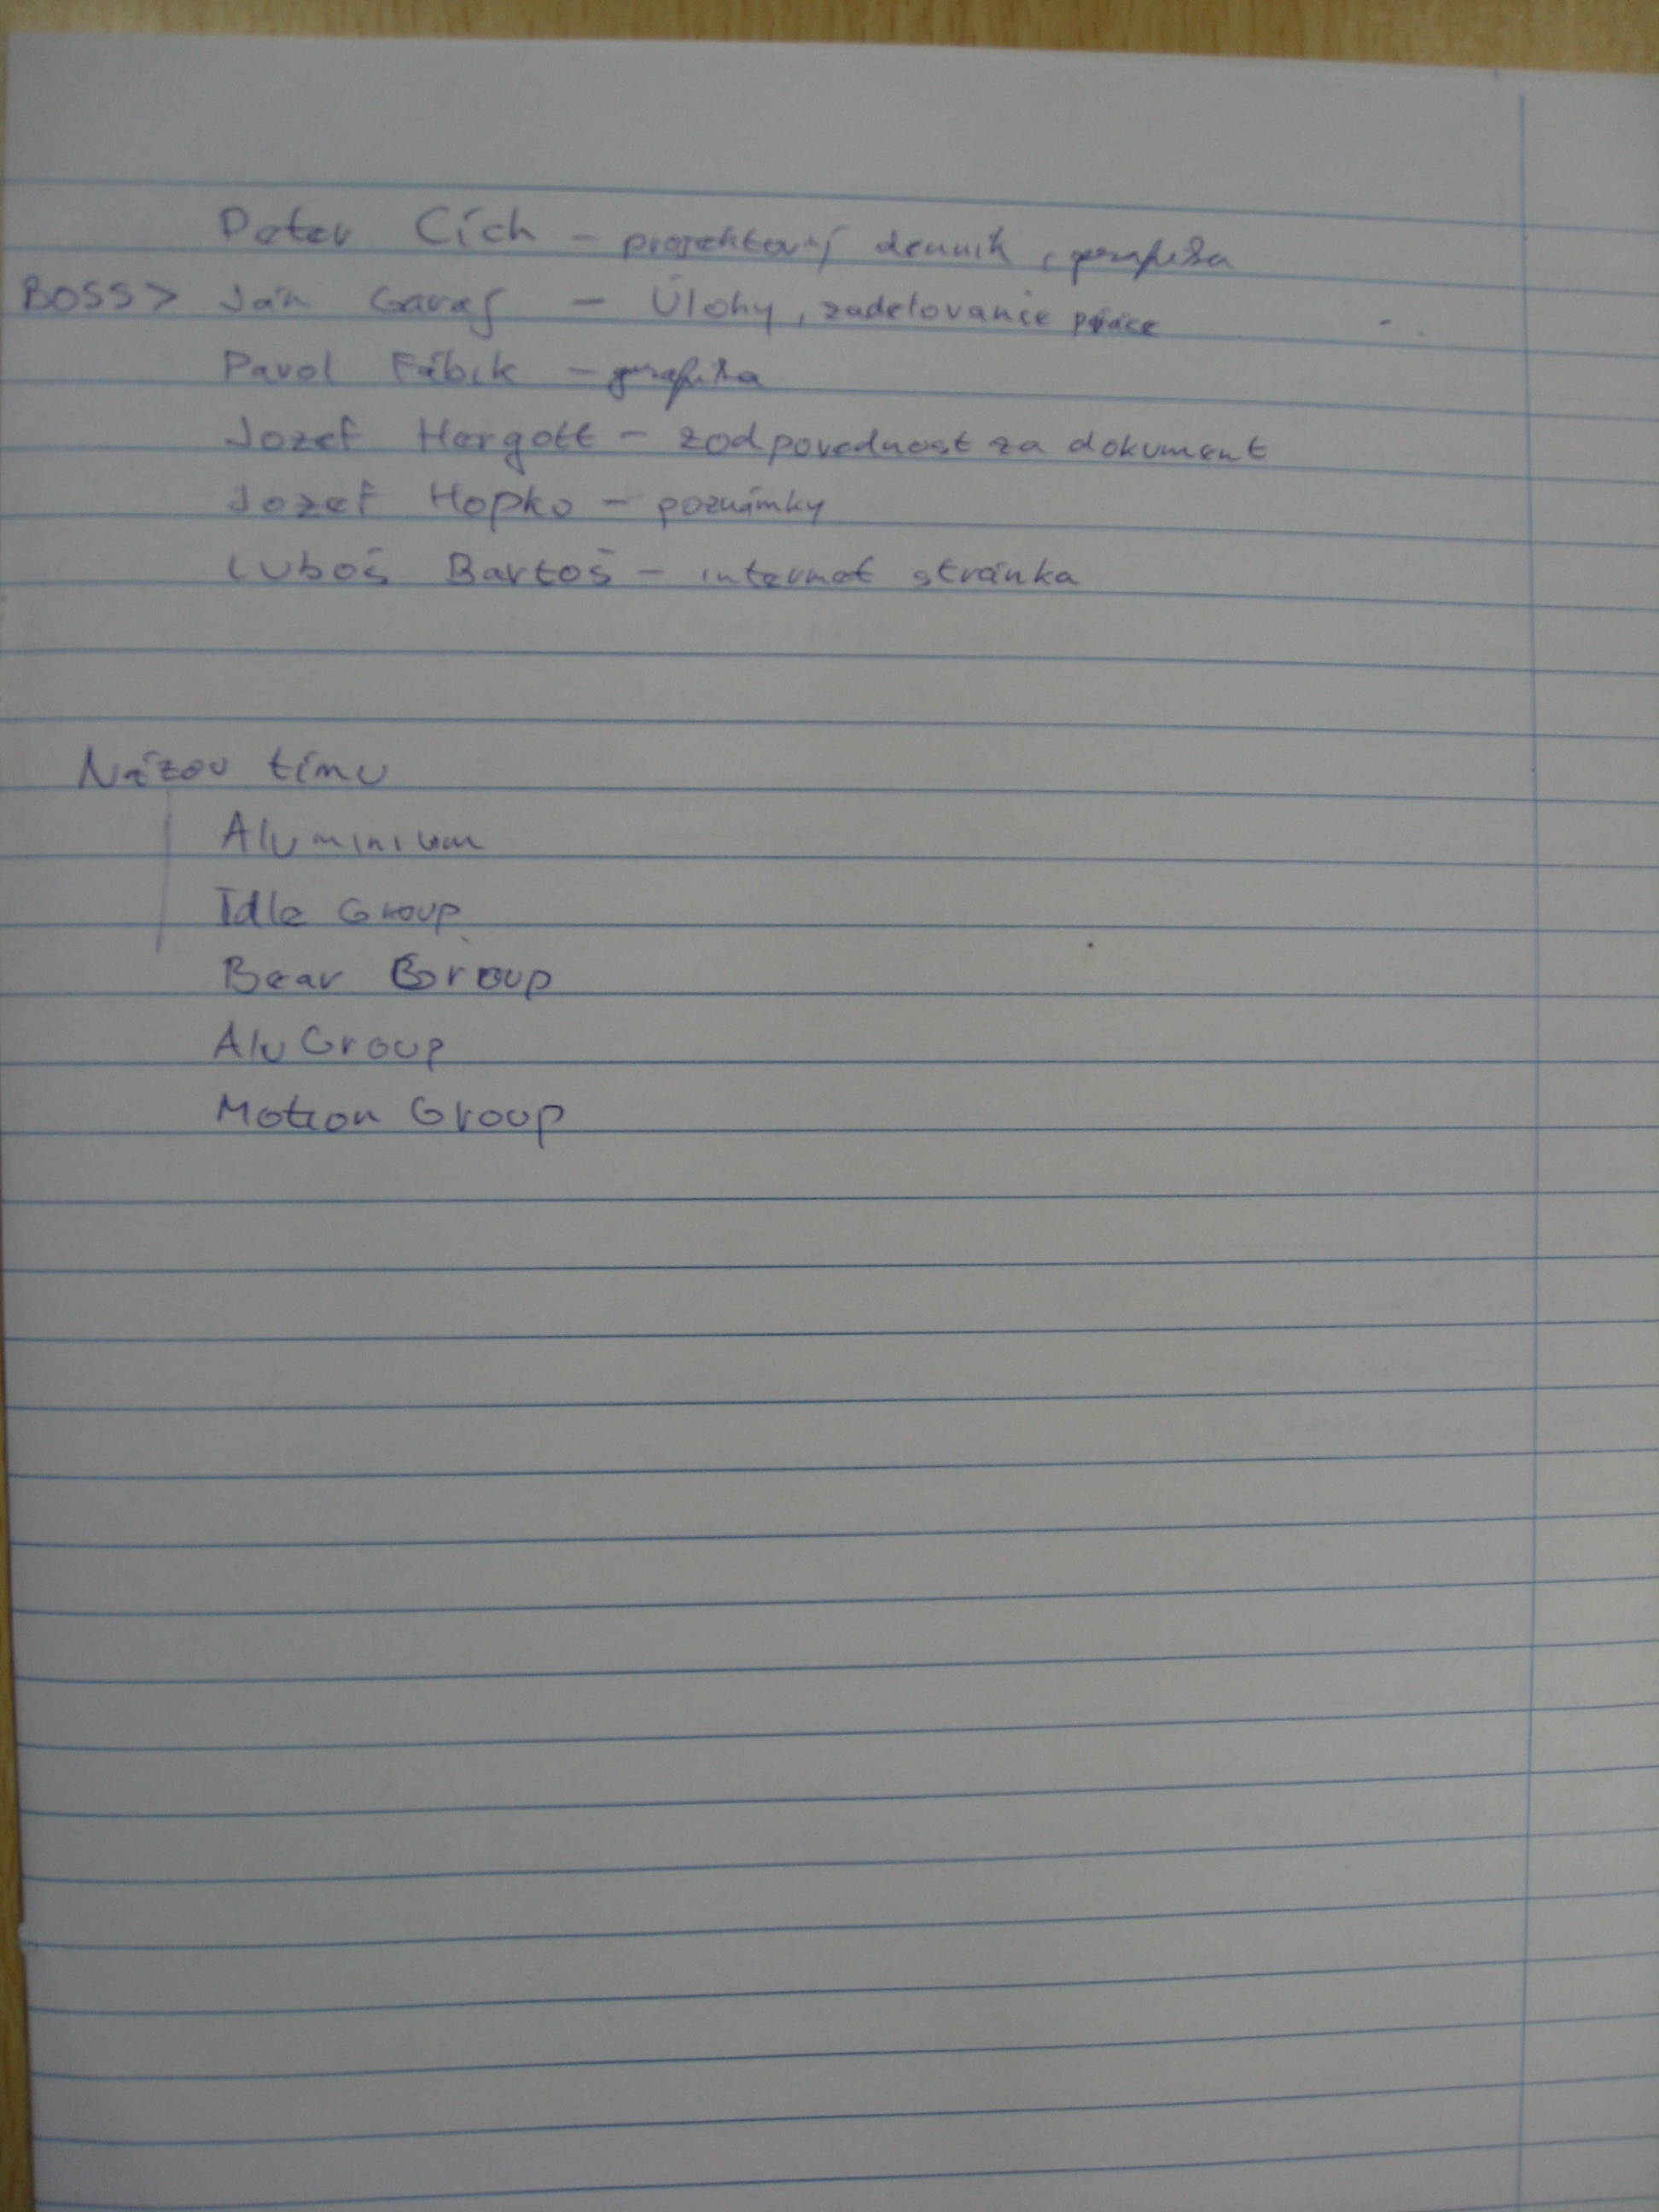 Peter Cích - projektový denník, grafika
BOSS > Ján Garaj - Úlohy, zadelovanie práce
Pavol Fábik - grafika
Jozef Hergott - zodpovednost za dokument
Jozef Hopko - poznámky
Luboš Bartoš - internet stránka
Názov tímu
Aluminium
Idle Group
Bear Group
Alu Group
Motion Group